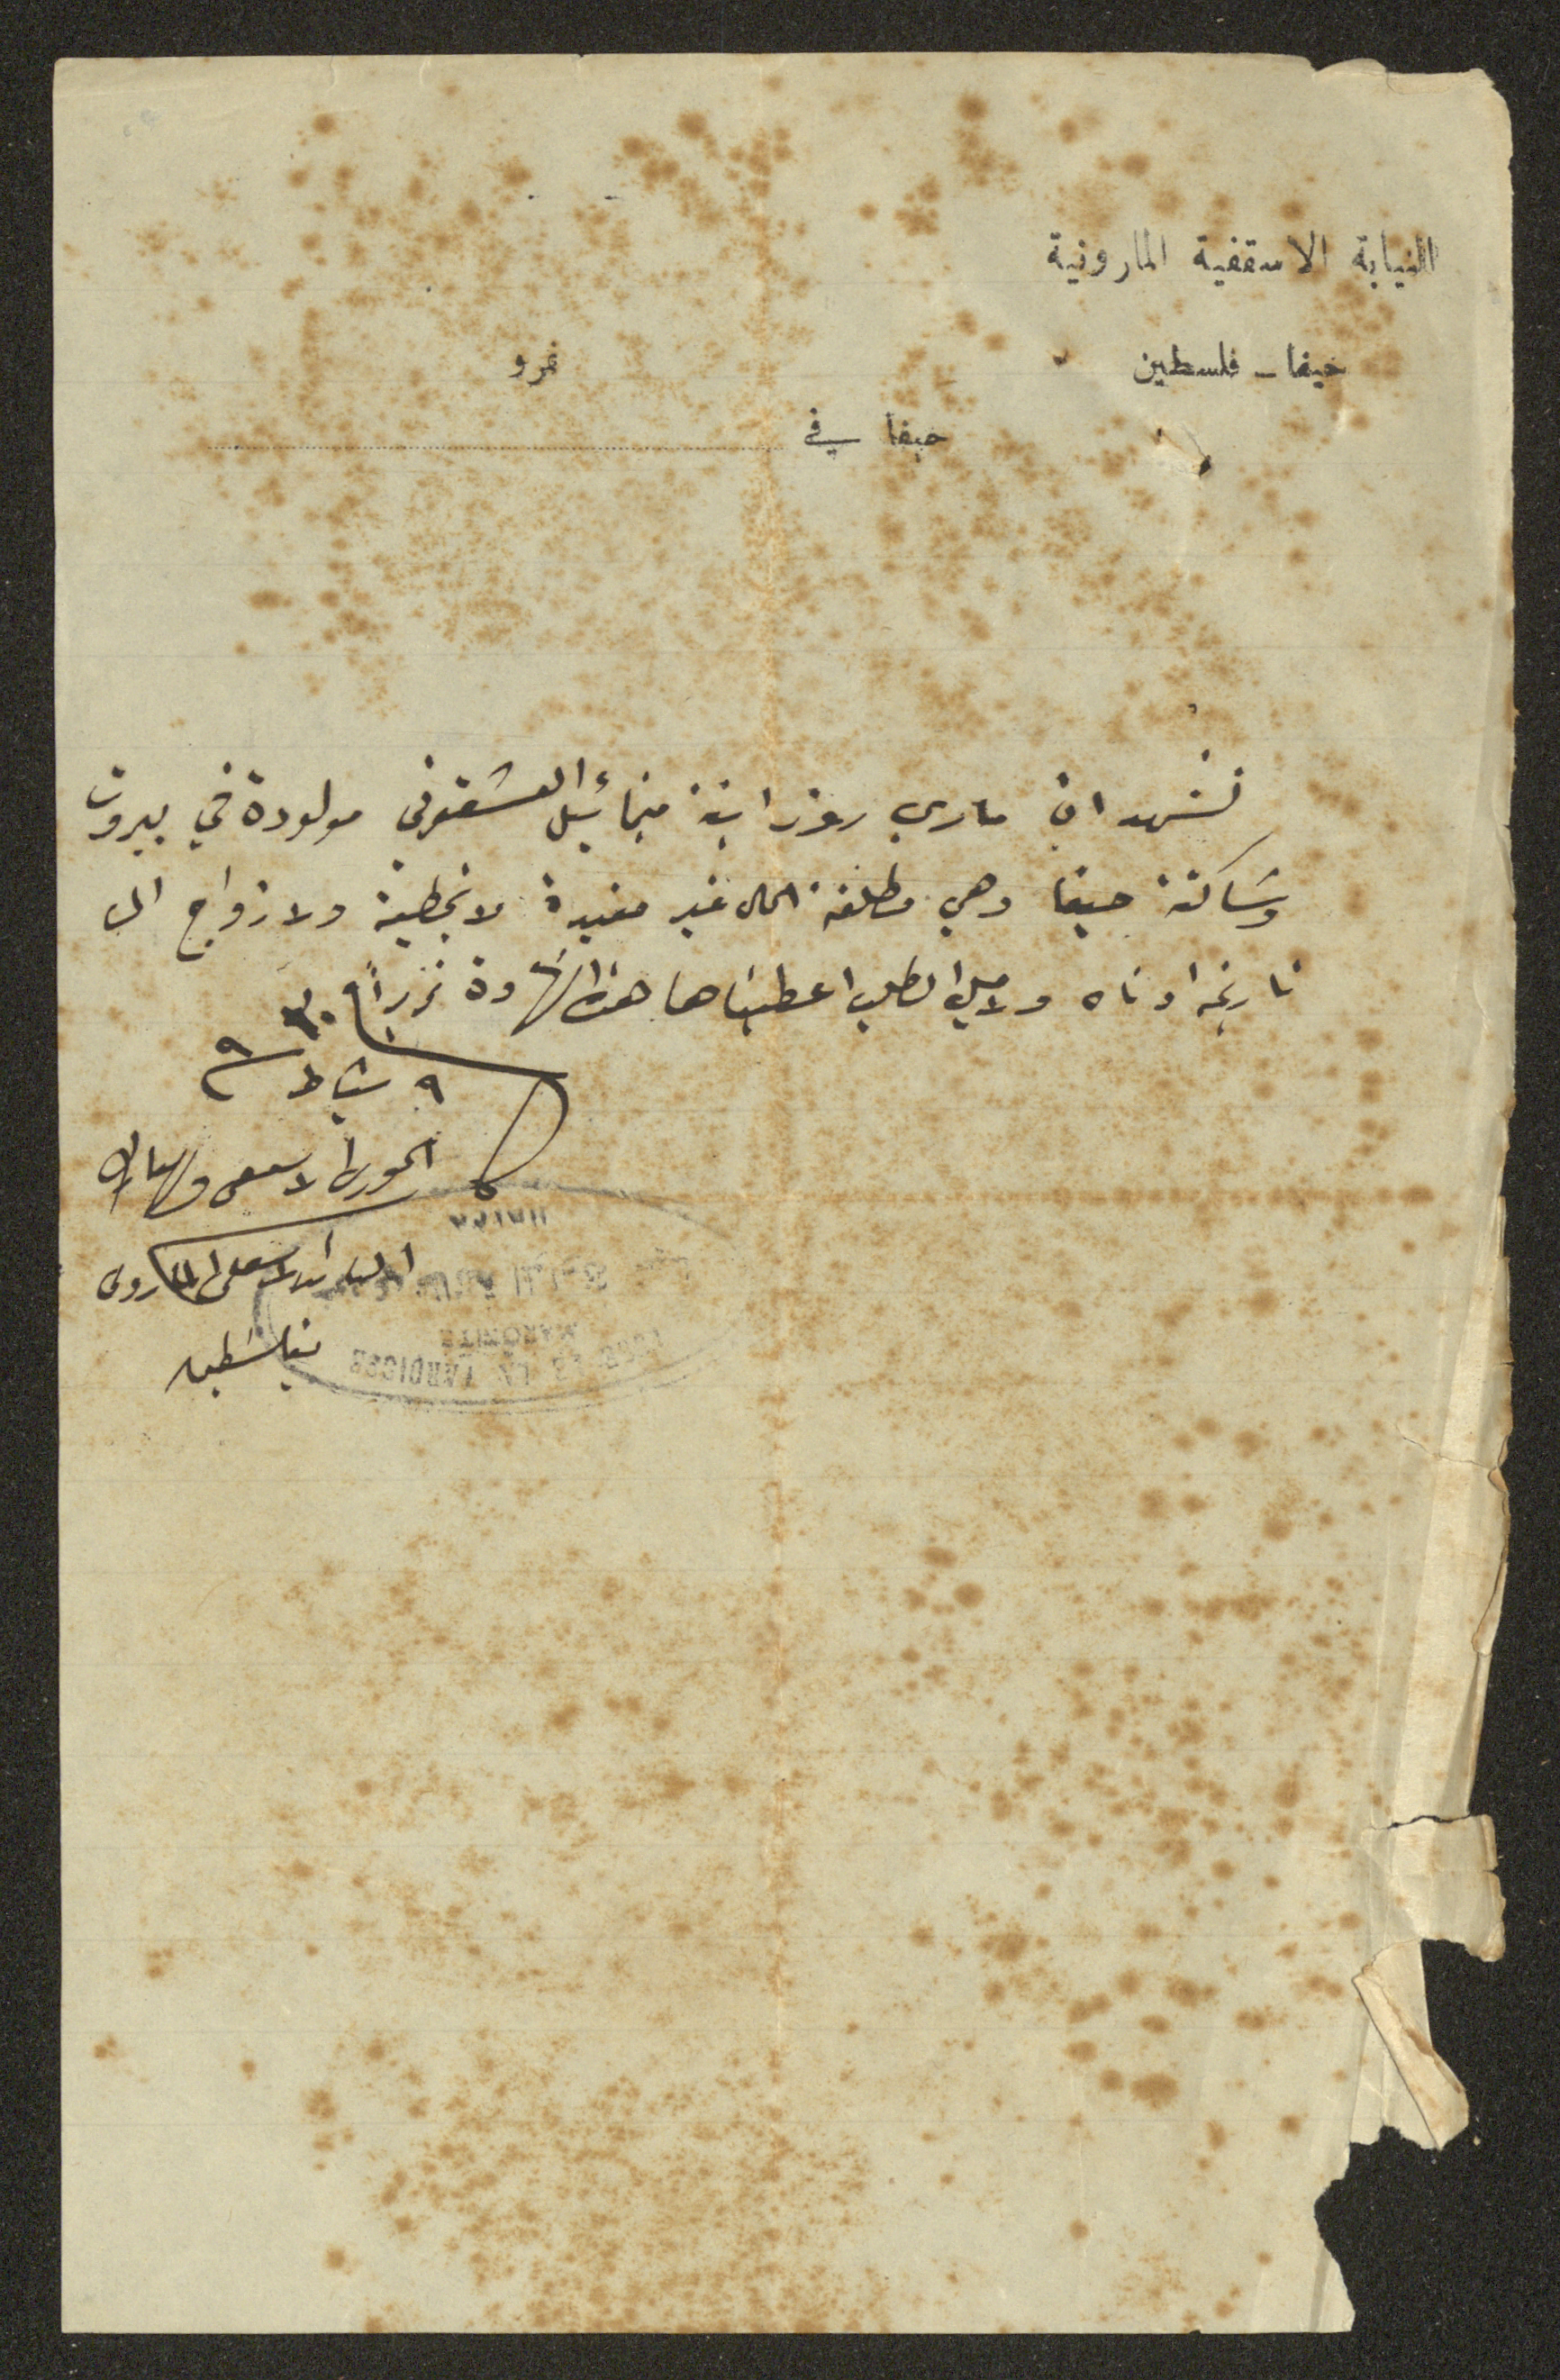 النيابة الاسقفية المارونية
حيفا - فلسطين
نمرو
حيفا في
نشهد ان ماري روز ابنة ميخائيل العشقوتي مولودة في بيروت
وساكنة حيفا وهي مطلقة الحال غير مقيدة لا بخطبة ولا زواج الى
تاريخه ادناه ولاجل الطلب اعطيناها هذه الشهادة تحريراً
٩ شباط
الخوري
الماروني
بفلسطين
HAIFA
MARONITE